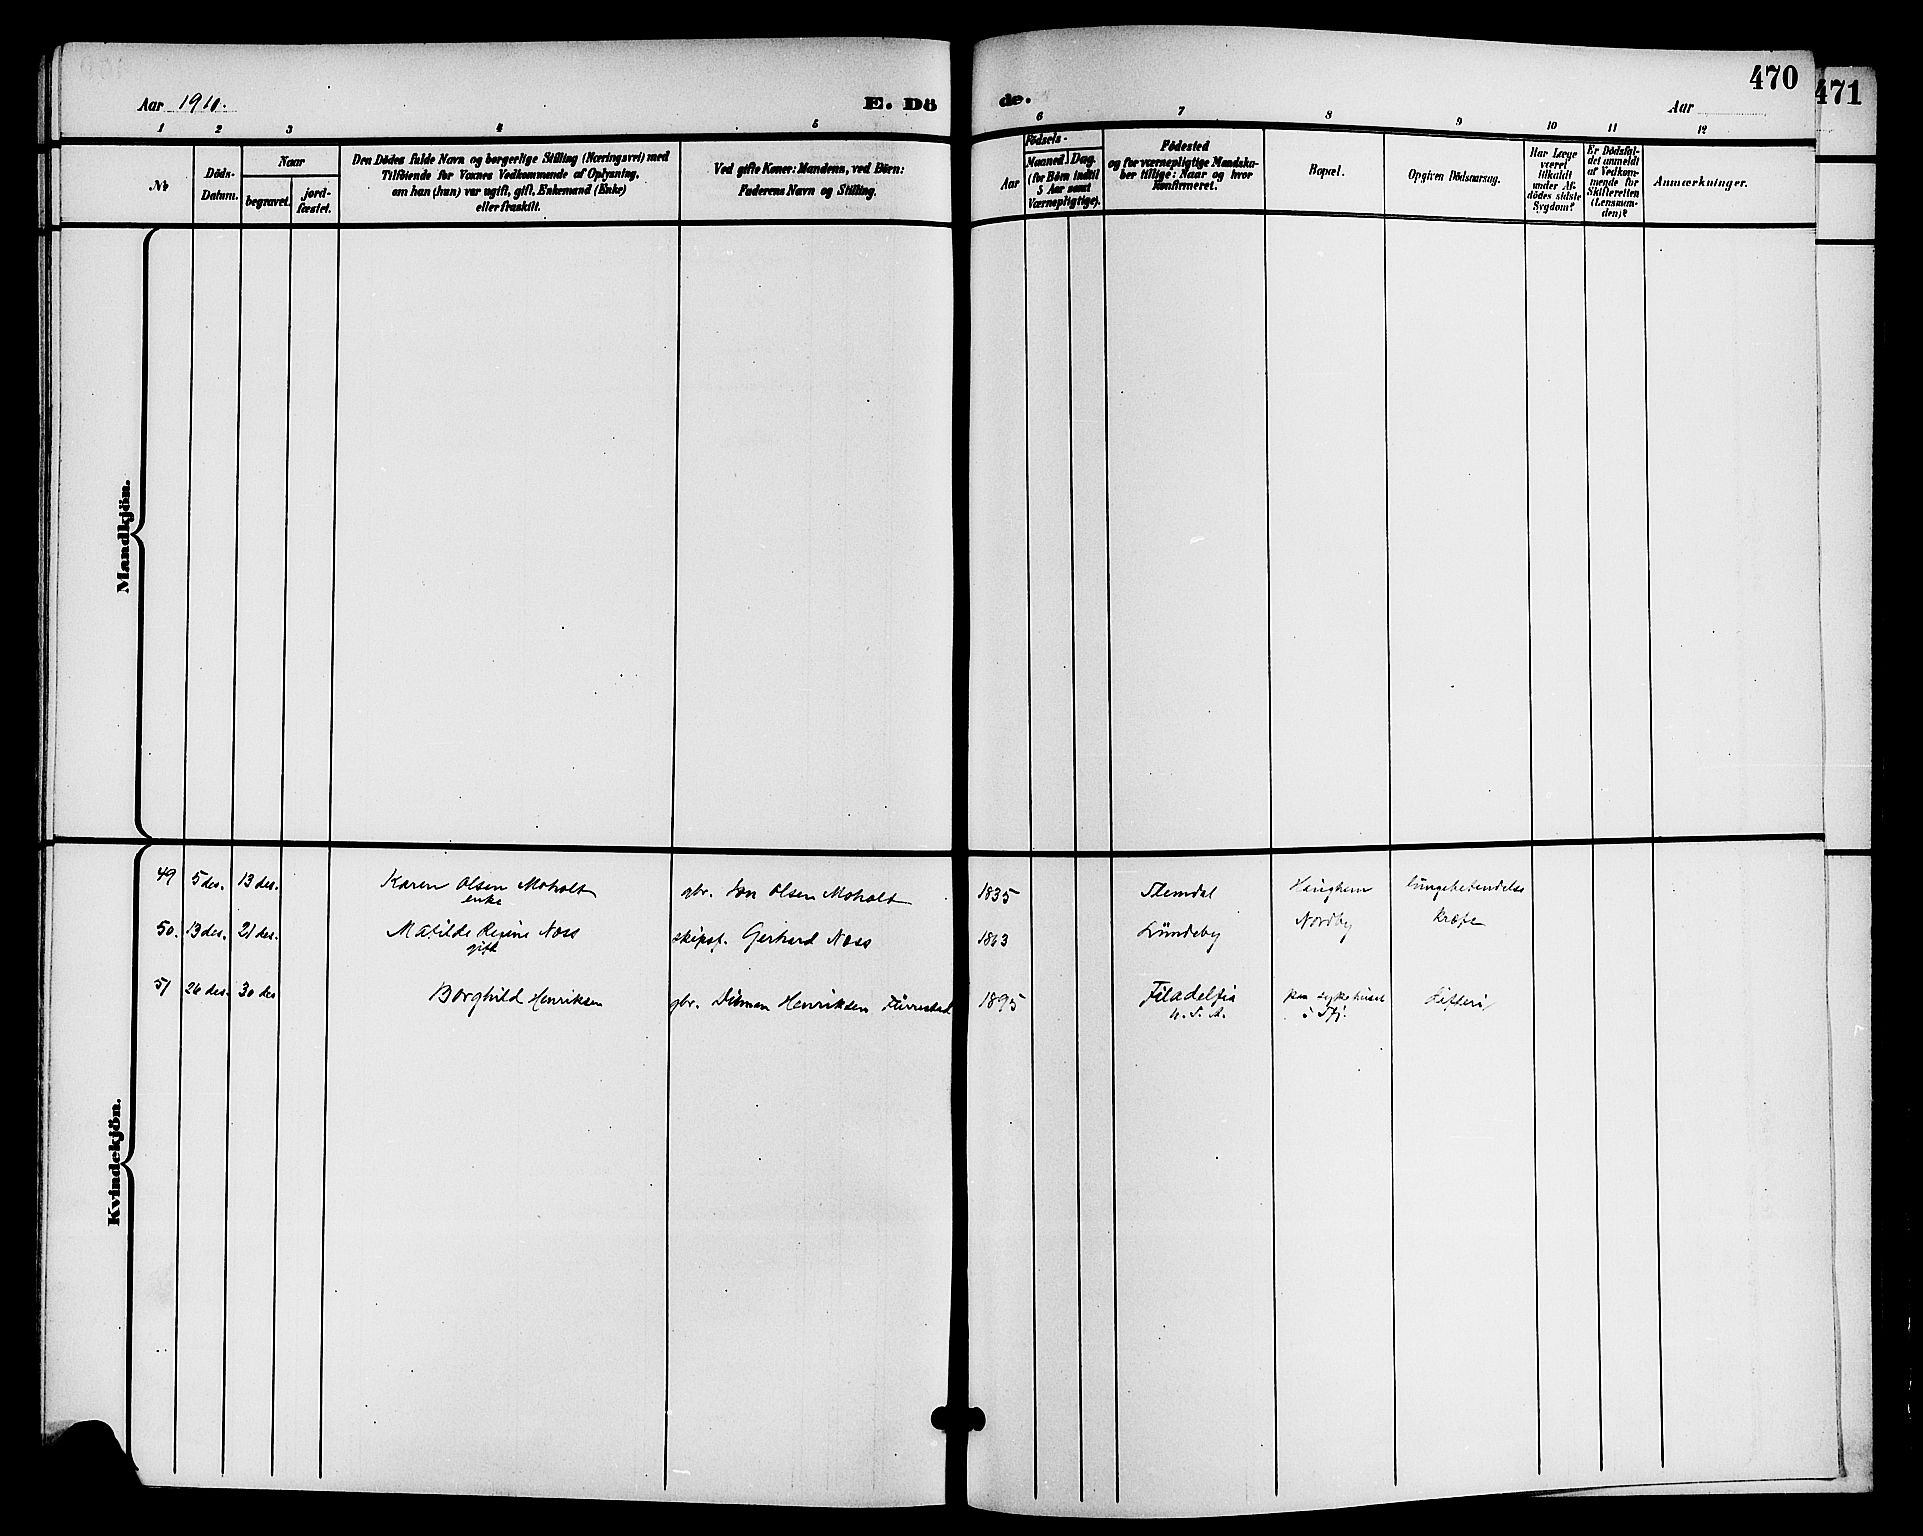 470
471
Aar 1910.
E. Dö
de.
Aar
1 2 3 4 5 6 7 8 9 10 11 12
No
Döds-
Datum.
Naar
begravet.
jord-
fæstet.
Den Dödes fulde Navn og borgerlige Stilling (Næringsvei) med
Tilföiende for Voxnes Vedkommende af Oplysning,
om han (hun) var ugift, gift, Enkemand (Enke)
eller fraskilt.
Ved gifte Koner: Mandens, ved Börn:
Faderens Navn og Stilling.
Födsels-
Aar
Maaned.
Dag.
(for Börn indtil
5 Aar samt
Værnepligtige).
Födested
og for værnepligtige Mandska-
ber tillige: Naar og hvor
konfirmeret.
Bopæl.
Opgiven Dödsaarsag.
Har Læge
været
tilkaldt
under Af-
dödes sidste
Sygdom?
Er Dödsfal-
det anmeldt
af Vedkom-
mende for
Skifteretten
(Lensman-
den)?
Anmærkninger.
Mandkjön.
Kvindekjön.
49 5 des. 13 des. Karen Olsen Moholt gbr. Jon Olsen Moholt 1835 Slemdal Haughem lungebetendelse
enke
50. 13 des. 21 des. Matilde Regine Næss skipsf. Gerhard Næss 1863 Lundeby Nordby kræft
gift
51 26 des. 30 des Borghild Henriksen gbr. Henriksen Furrestad 1895 Filadelfia paa sykehuset Difteri
U. S. A. i